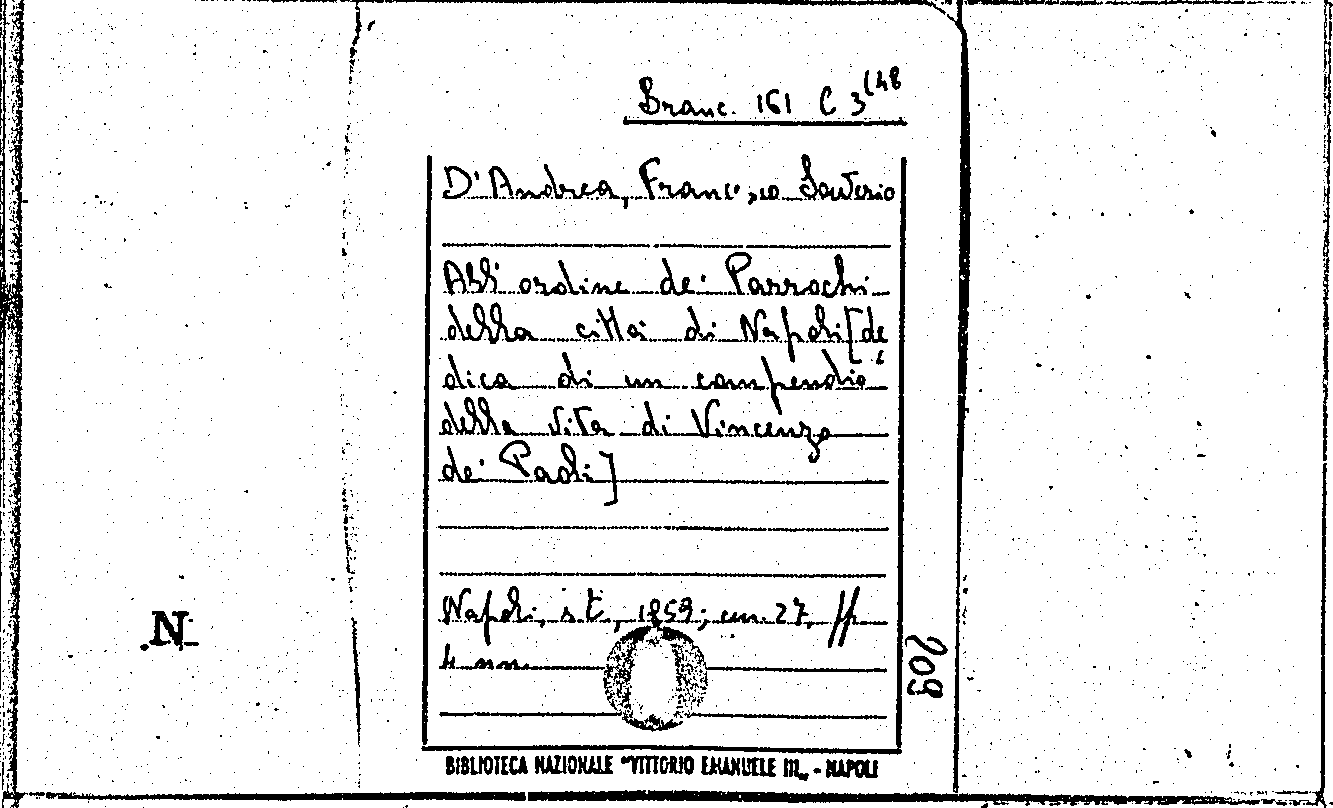 Branc. 161 C 3(48
D'Andrea, Francesco Saverio
All'ordine de' Parrochi
della città di Napoli [de
dica di un compendio
della vita di Vincenzo
de' Paoli]
Napoli, s.t., 1859; cm. 27, ff
4 nn.
209
N
BIBLIOTECA NAZIONALE "VITTORIO EMANUELE III" - NAPOLI